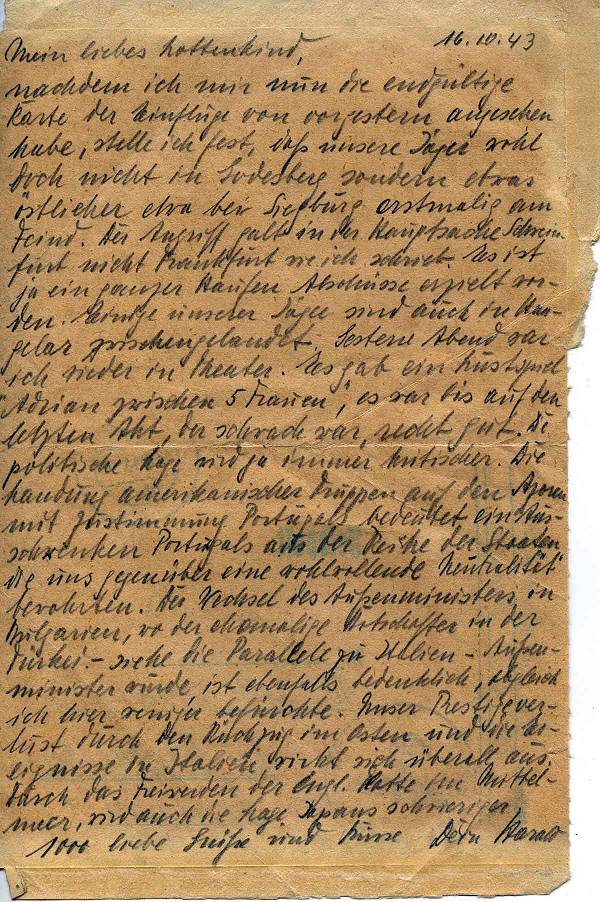 16.10.43
Mein liebes Lottenkind,
nachdem ich mir nun die endgültige
Karte der Einflüge von vorgestern angesehen
habe, stelle ich fest, daß unsere Jäger wohl
doch nicht in Godesberg sondern etwas
östlicher etwa bei Siegburg erstmalig am
Feind. Der Angriff galt in der Hauptsache Schwein
furt nicht Frankfurt wie ich schrieb. Es ist
ja ein ganzer Haufen Abschüsse erzielt wor-
den. Einige unserer Jäger sind auch in Han-
gelar zwischengelandet. Gestern Abend war
ich wieder in Theater. Es gab ein Lustspiel
"Adrian zwischen 5 Frauen", es war bis auf den
letzten Akt, der schwach war, recht gut. Die
politische Lage wird ja immer kritischer. Die
Landung amerikanischer Truppen auf den Azoren
mit Zustimmung Portugals bedeutet ein Aus-
schwenken Portugals aus der Reihe der Staaten
die uns gegenüber eine wohlwollende Neutralität
bewahrten. Der Wechsel des Außenministers in
Bulgarien, wo der ehemalige Botschafter in der
Türkei – siehe die Parallele zu Italien – Außen-
minister wurde, ist ebenfalls bedenklich, obgleich
ich hier weniger befürchte. Unser Prestigever-
lust durch den Rückzug im Osten und die Er-
eignisse in Italien wirkt sich überall aus.
Durch das Freiwerden der engl. Flotte im Mittel-
meer, wird auch die Lage Japans schwieriger.
1000 liebe Grüße und Küsse Dein Harald